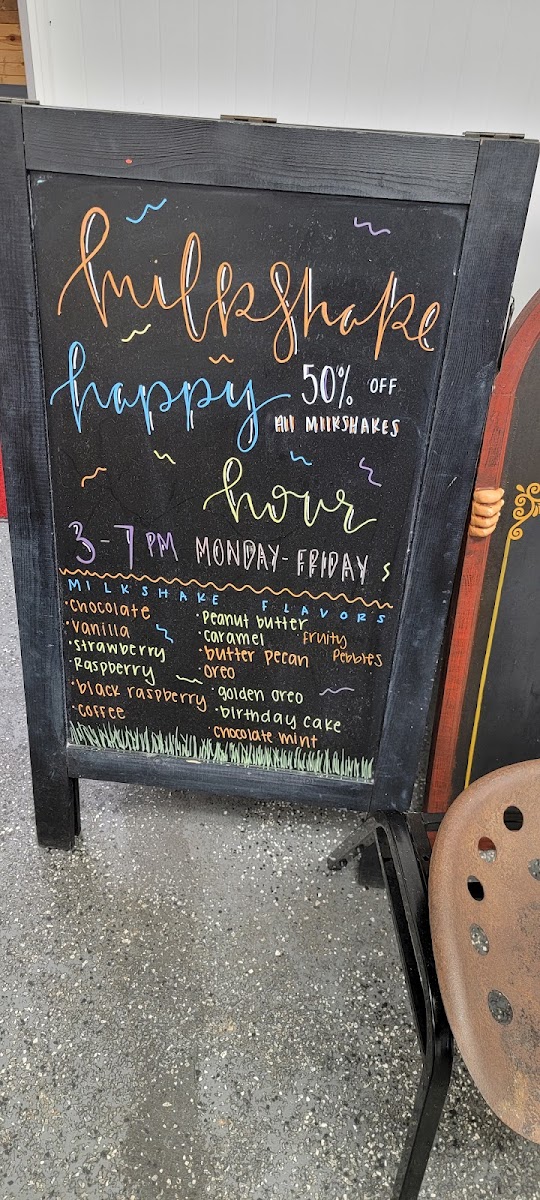 milkshake
happy
50% OFF
All MIlKSHAKES
hour
3-7 PM MONDAY-FRIDAY
MILKSHAKE FLAVORS
·chocolate
·vanilla
·strawberry
·Raspberry
·black raspberry
·coffee
·Peanut butter
·caramel
·butter pecan
·oreo
·golden oreo
·birthday cake
chocolate mint
fruity
Pebbles